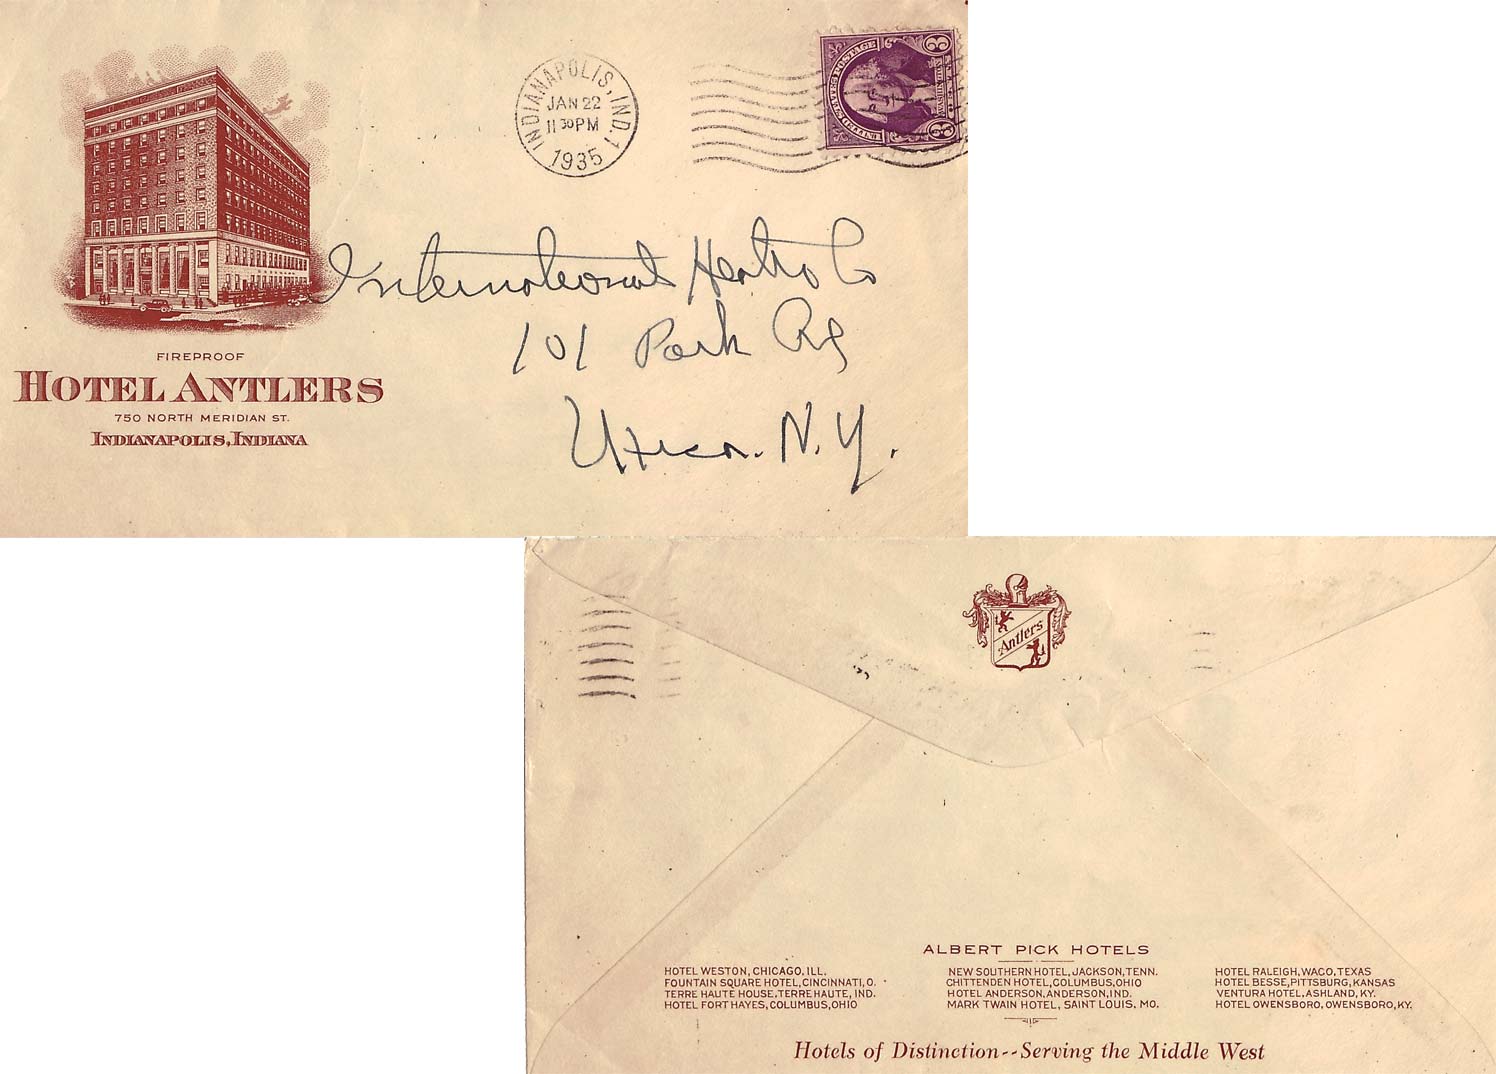 INDIANAPOLIS, IND. 1
JAN 22
11 30 PM
1935
UNITED STATES POSTAGE
3 3
International Heating Co
101 Park Rg
Utica. N.Y.
FIREPROOF
HOTEL ANTLERS
750 NORTH MERIDIAN ST.
INDIANAPOLIS, INDIANA
Antlers
ALBERT PICK HOTELS
HOTEL WESTON, CHICAGO, ILL.
FOUNTAIN SQUARE HOTEL, CINCINNATI, O.
TERRE HAUTE HOUSE, TERRE HAUTE, IND.
HOTEL FORT HAYES, COLUMBUS, OHIO
NEW SOUTHERN HOTEL, JACKSON, TENN.
CHITTENDEN HOTEL, COLUMBUS, OHIO
HOTEL ANDERSON, ANDERSON, IND.
MARK TWAIN HOTEL, SAINT LOUIS, MO.
HOTEL RALEIGH, WACO, TEXAS
HOTEL BESSE, PITTSBURG, KANSAS
VENTURA HOTEL, ASHLAND, KY.
HOTEL OWENSBORO, OWENSBORO, KY.
Hotels of Distinction--Serving the Middle West